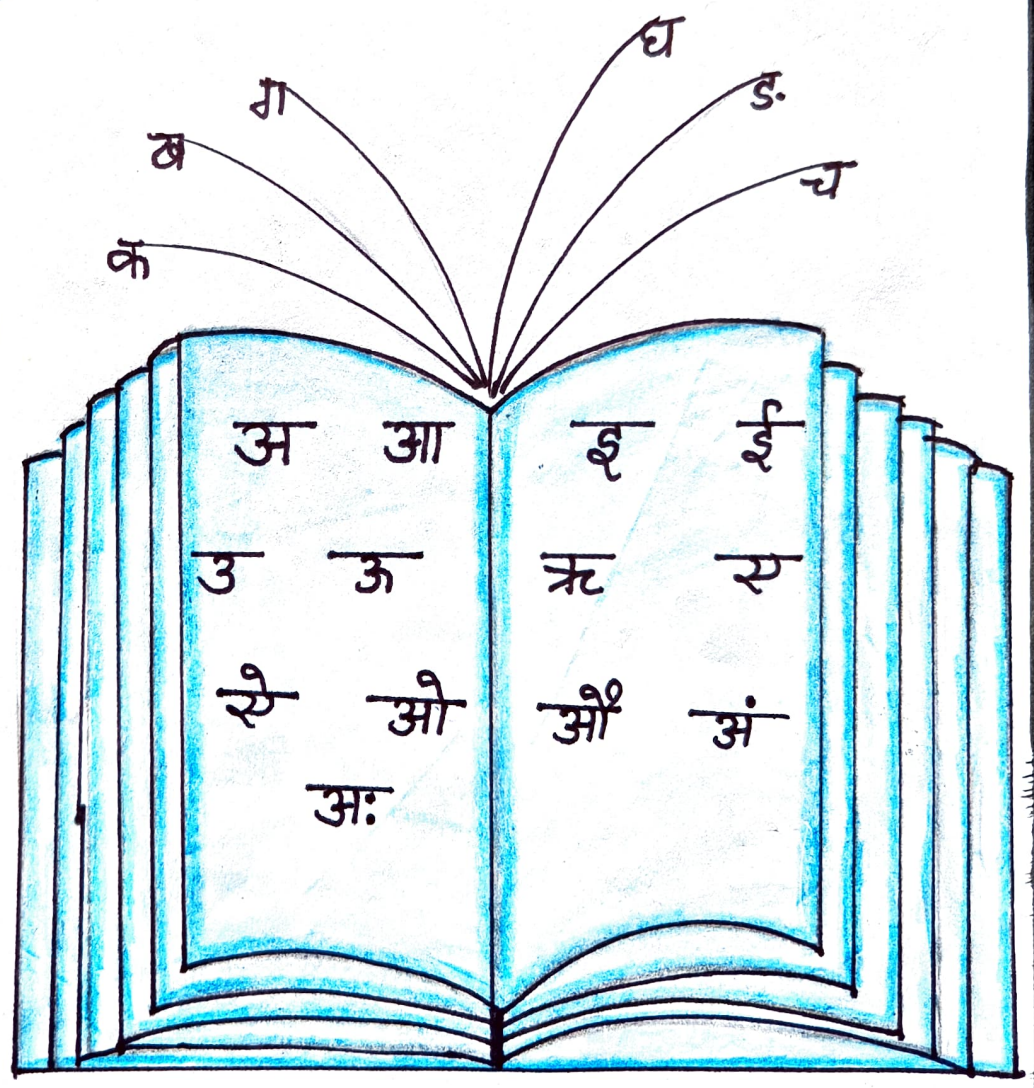 क
ख
ग
घ
ङ
च
अ आ इ ई
उ ऊ ऋ ए
ऐ ओ औ अं
अः